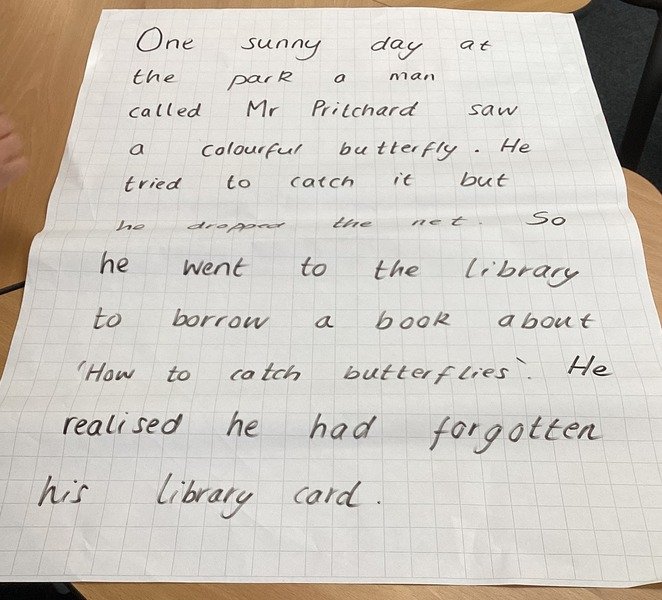 One sunny day at
the park a man
called Mr Prilchard saw
a colourful butterfly. He
tried to catch it but
he dropped the net. So
he went to the library
to borrow a book about
'How to catch butterflies'. He
realised he had forgotten
his library card.